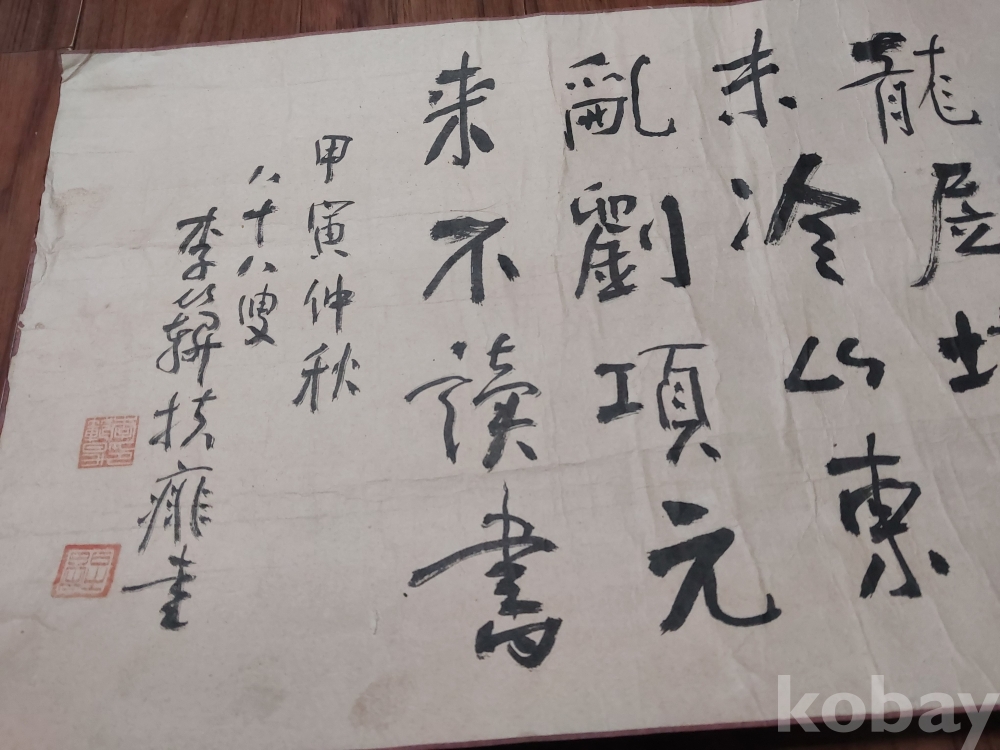 龍居
未冷山東
亂劉項元
来不讀書
甲寅仲秋
八十八叟
李扶痱書
kobay